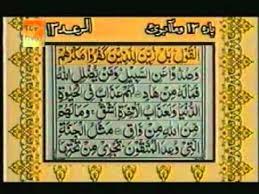 پارہ ۱۳ ومآ ابرئ الرعد ۱۳
الْقَوْلِ بَلْ زُيِّنَ لِلَّذِينَ كَفَرُوا مَكْرُهُمْ
وَصُدُّوا عَنِ السَّبِيلِ وَمَنْ يُضْلِلِ اللّٰهُ
فَمَا لَهُ مِنْ هَادٍ لَهُمْ عَذَابٌ فِي الْحَيٰوةِ
الدُّنْيَا وَلَعَذَابُ الْاٰخِرَةِ اَشَقُّ وَمَا لَهُمْ
مِنَ اللّٰهِ مِنْ وَاقٍ مَثَلُ الْجَنَّةِ
الَّتِي وُعِدَ الْمُتَّقُونَ تَجْرِي مِنْ تَحْتِهَا